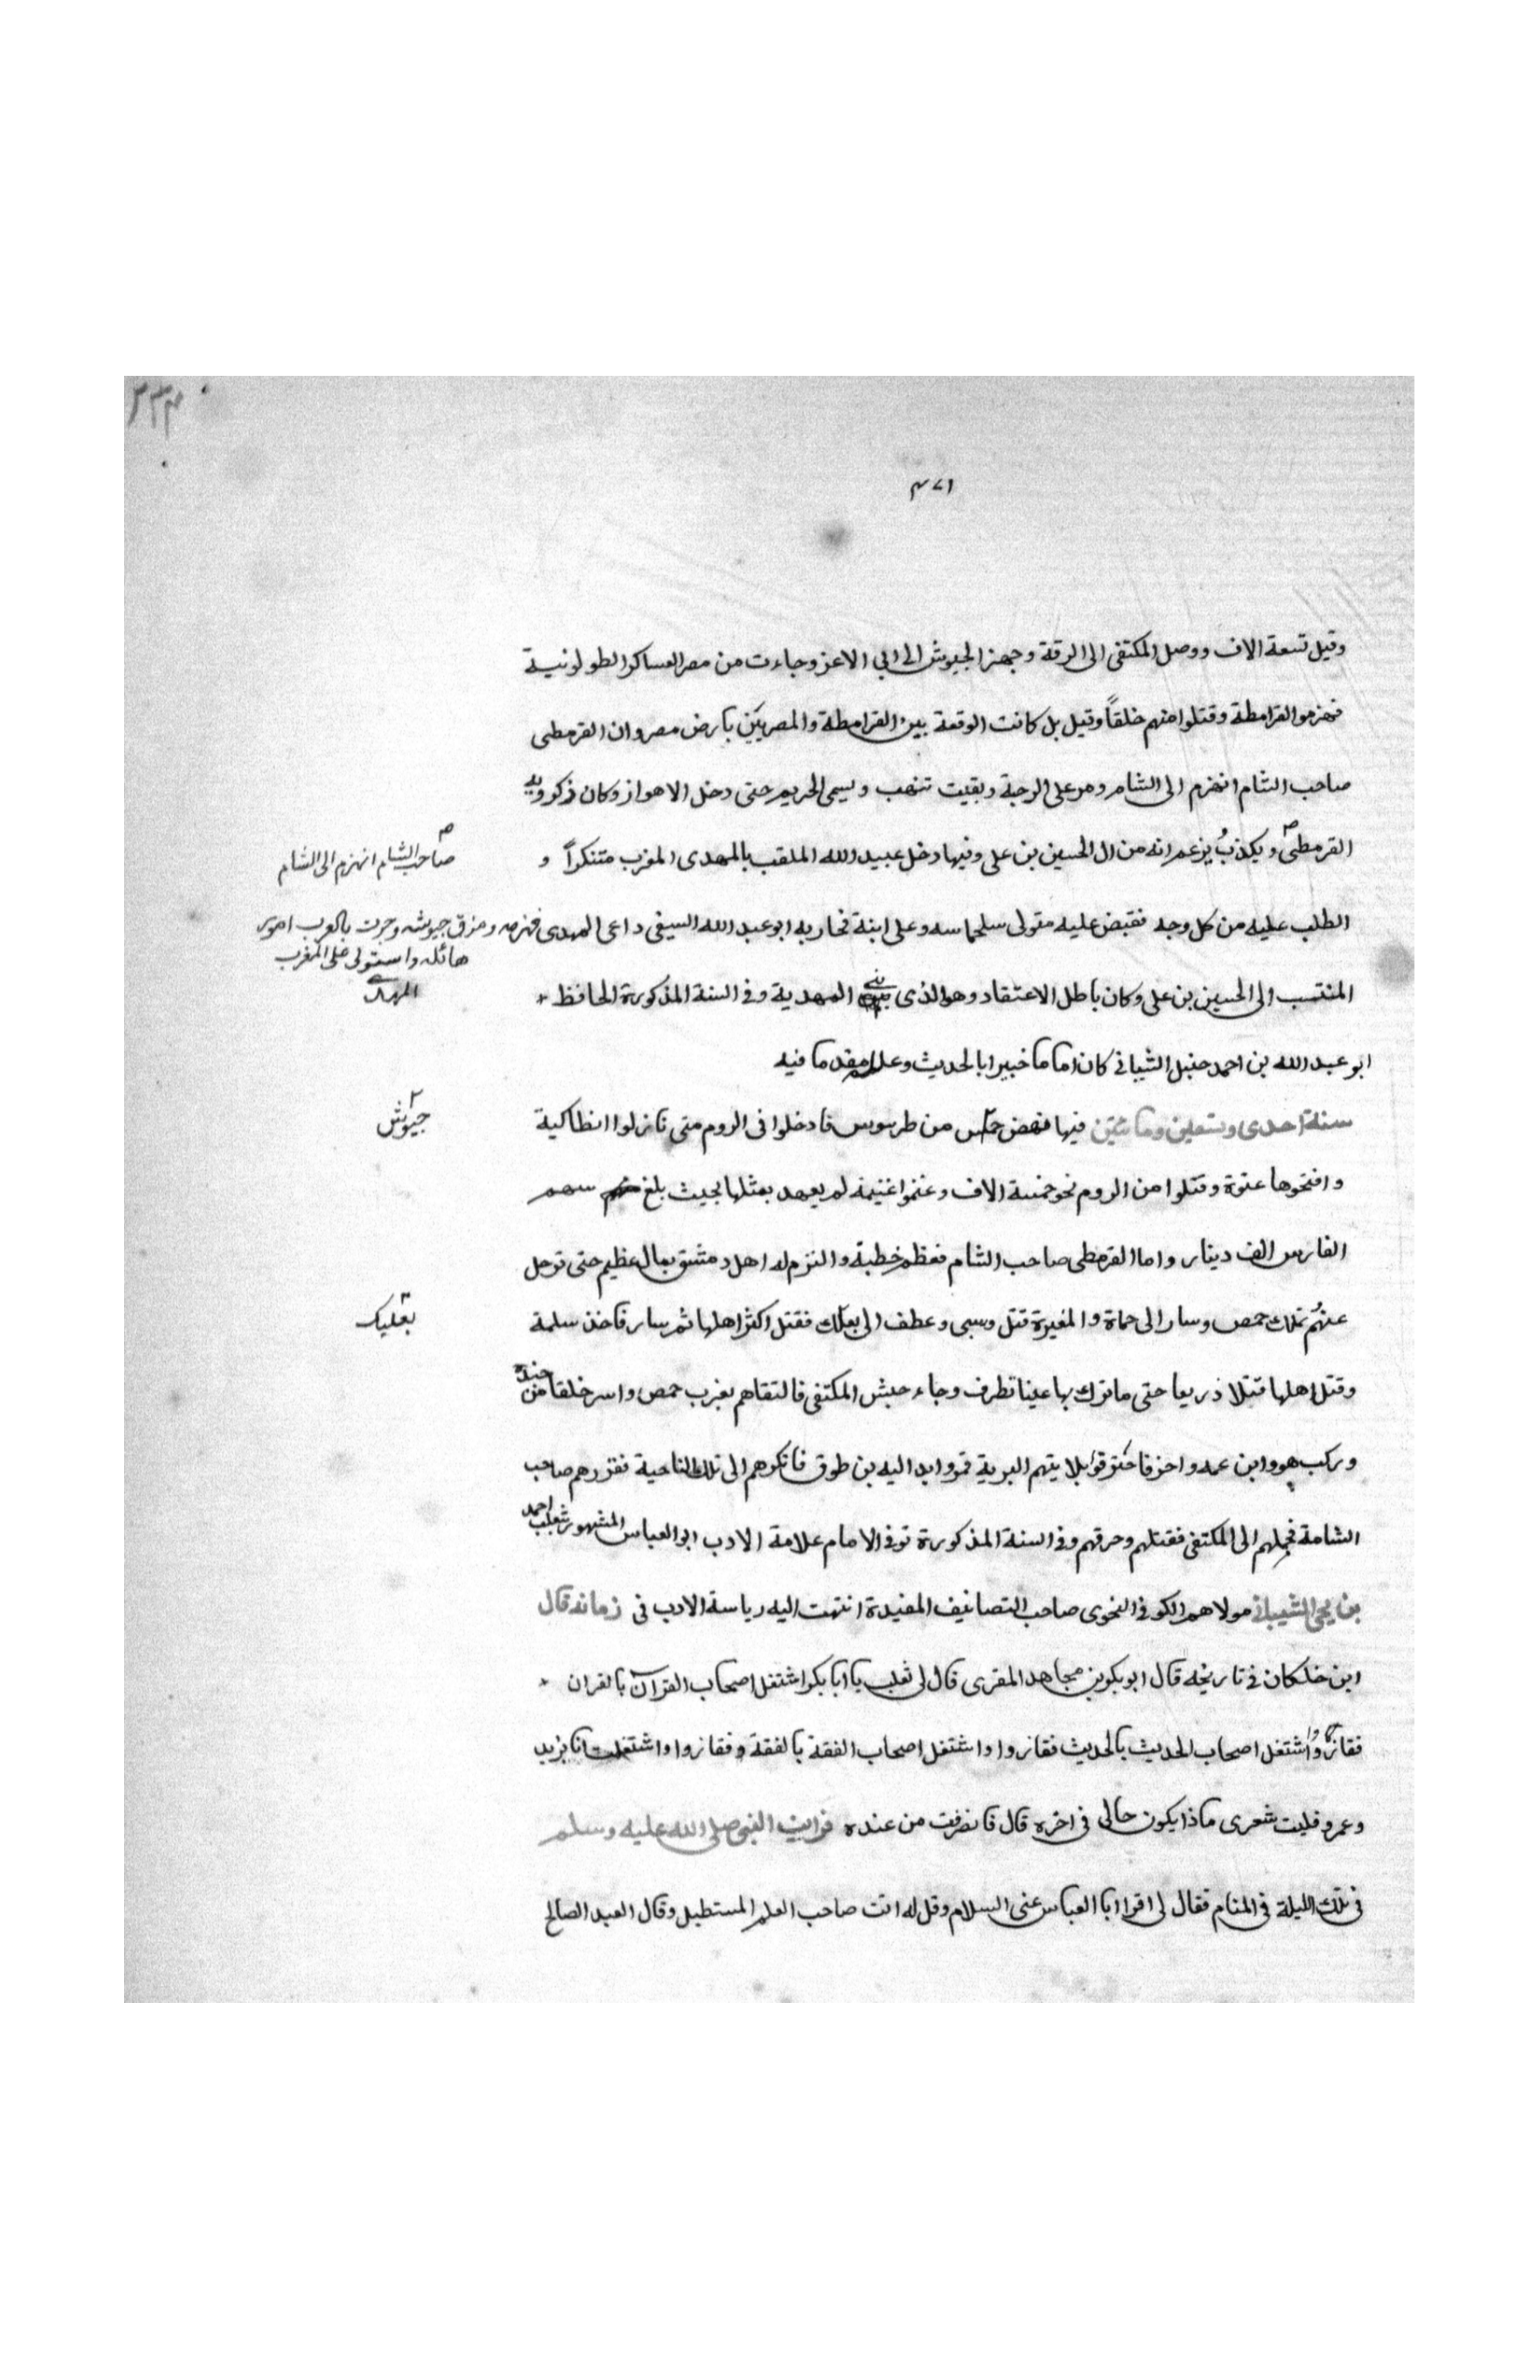 ٣٣٣
٤٧١
وقيل تسعة الاف ووصل المكتفى الى الرقة وجهز الجيوش الى ابي الاعز وجاءت من مصر العساكر الطولونية
فهزموا القرامطة وقتلوا منهم خلقاً وقيل بل كانت الوقعة بين القرامطة والمصريين بارض مصر وان القرمطى
صاحب الشام انهزم الى الشام ومر على الرحبة وبقيت تنهب ويسبى الحريم حتى دخل الاهواز وكان زكرويه
القرمطى ويكذب يزعم انه من ال الحسين بن على وفيها دخل عبيد الله الملقب بالمهدى المغرب متنكراً و
صاحب الشام انهزم الى الشام
الطلب عليه من كل وجه فقبض عليه متولى سلجماسه وعلى ابنة فحاربه ابو عبد الله السيفى داعى المهدى فهزمه ومزق جيوشه وجرت بالعرب امور
هائله واستولى على المغرب
المهدى
المنتسب الى الحسين بن على وكان باطل الاعتقاد وهو الذى بنى المهدية وفى السنة المذكورة الحافظ
ابو عبد الله بن احمد حنبل الشيبانى كان اماما خبيرا بالحديث وعلله مقدما فيه
سنة احدى وتسعين ومائتين فيها نهض من طرسوس فادخلوا فى الروم متى نازلوا انطاكية
جيوش
وافتحوها عنوة وقتلوا من الروم نحو خمسة الاف وغنموا غنيمه لم يعهد بمثلها بحيث بلغ سهم
الفارس الف دينار واما القرمطى صاحب الشام فعظم خطبة والتزم له اهل دمشق بمال عظيم حتى ترحل
عنهم تملك حمص وسار الى حماة والمغيرة قتل وسبى وعطف الى بعلبك فقتل اكثر اهلها ثم سار فاخذ سلمة
بعلبك
وقتل اهلها قتلا ذريعا حتى ماترك بها عينا تطرف وجاء جيش المكتفى فالتقاهم بغرب حمص واسر خلقا من جنده
وركب هو وابن عمه واخر فاخترقوا بلايتهم البرية فمروا بداليه بن طوق فانكرهم الى تلك الناحية فقررهم صاحب
الشامة فحملهم الى المكتفى فقتلهم وحرقهم وفى السنة المذكورة توفى الامام علامة الادب ابو العباس المشهور بثعلب احمد
بن يحيى الشيبانى مولاهم الكوفى النحوى صاحب التصانيف المفيدة انتهت اليه رياسة الادب فى زمانه قال
ابن خلكان فى تاريخه قال ابو بكر بن مجاهد المقرى قال لى ثعلب يا ابا بكر اشتغل اصحاب القرآن بالقران
فقازوا واشتغل اصحاب الحديث بالحديث فقازوا واشتغل اصحاب الفقة بالفقة وفقازوا واشتغلت انا بزيد
وعمرو فليت شعرى ماذا يكون حالى فى اخره قال فانصرفت من عنده فرايت النبى صلى الله عليه وسلم
فى تلك الليلة فى المنام فقال لى اقرا ابا العباس عنى السلام وقل له انت صاحب العلم المستطيل وقال العبد الصالح